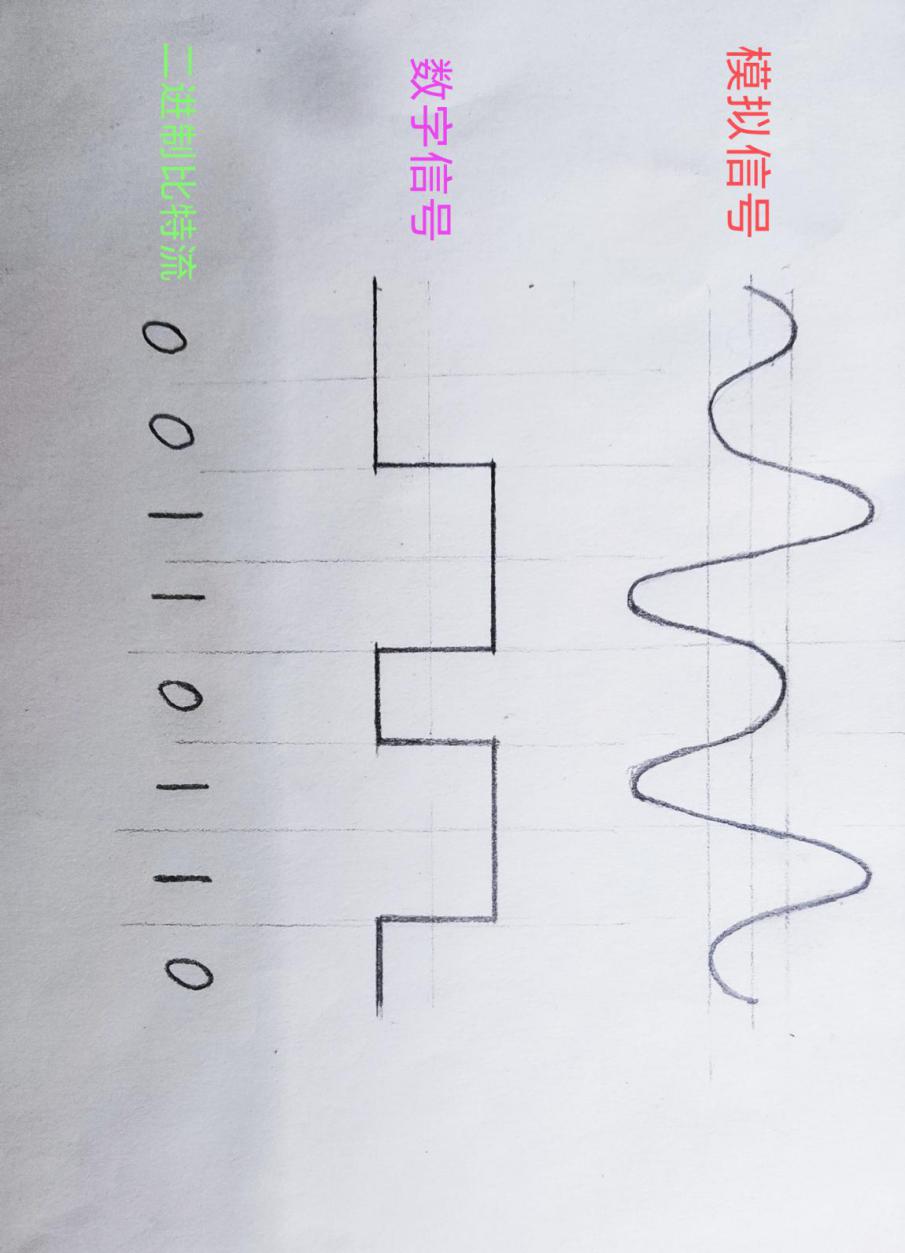 模拟信号
数字信号
二进制比特流
0 0 1 1 0 1 1 0